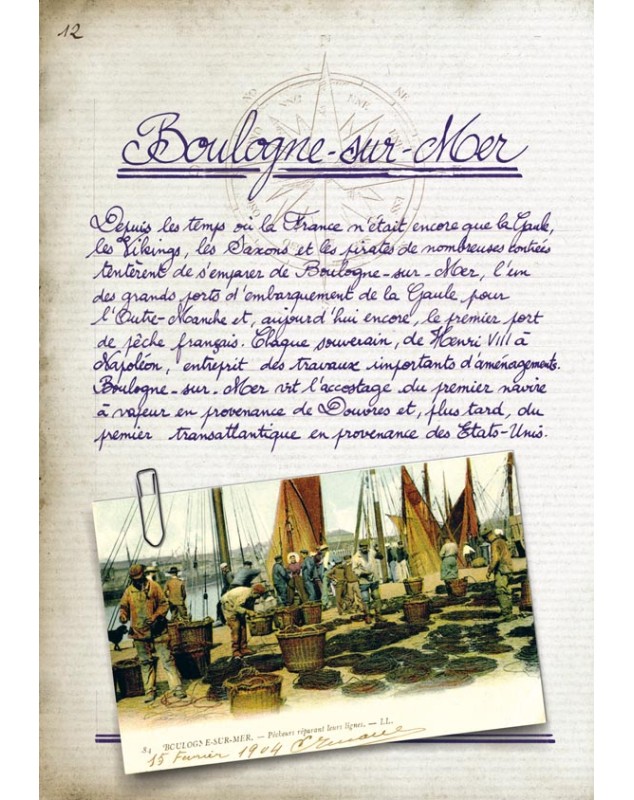 12
NO
N
NE
NNO
NNE
ENE
Boulogne-sur-Mer
Depuis les temps où la France n'était encore que la Gaule,
les Vikings, les Saxons et les pirates de nombreuses contrées
tentèrent de s'emparer de Boulogne-sur-Mer, l'un
des grands ports d'embarquement de la Gaule pour
l'Outre-Manche et, aujourd'hui encore, le premier port
de pêche français. Chaque souverain, de Henri VIII à
Napoléon, entreprit des travaux importants d'aménagements.
Boulogne-sur-Mer vit l'accostage du premier navire
à vapeur en provenance de Douvres et, plus tard, du
premier transatlantique en provenance des Etats-Unis.
84 BOULOGNE-SUR-MER. — Pêcheurs réparant leurs lignes. — LL.
15 Fevrier 1904